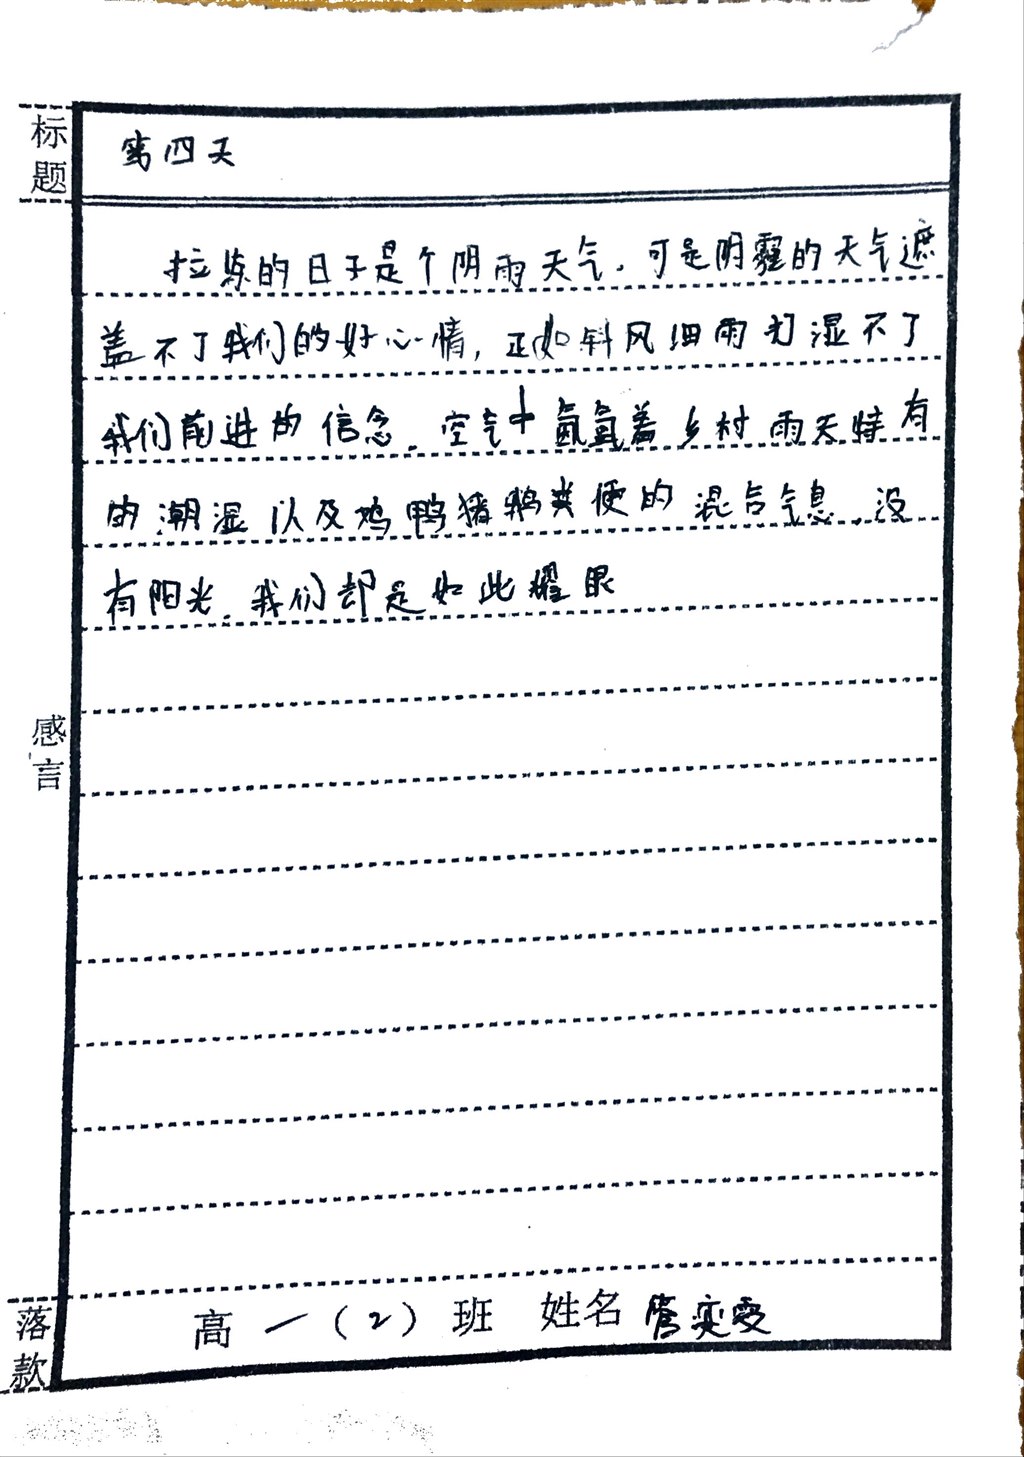 标题
第四天
拉练的日子是个阴雨天气，可是阴霾的天气遮
盖不了我们的好心情，正如斜风细雨打湿不了
我们前进的信念。空气中氤氲着乡村雨天特有
的潮湿以及鸡鸭猪鹅粪便的混合气息，没
有阳光，我们却是如此耀眼
感言
落款
高一（2）班 姓名